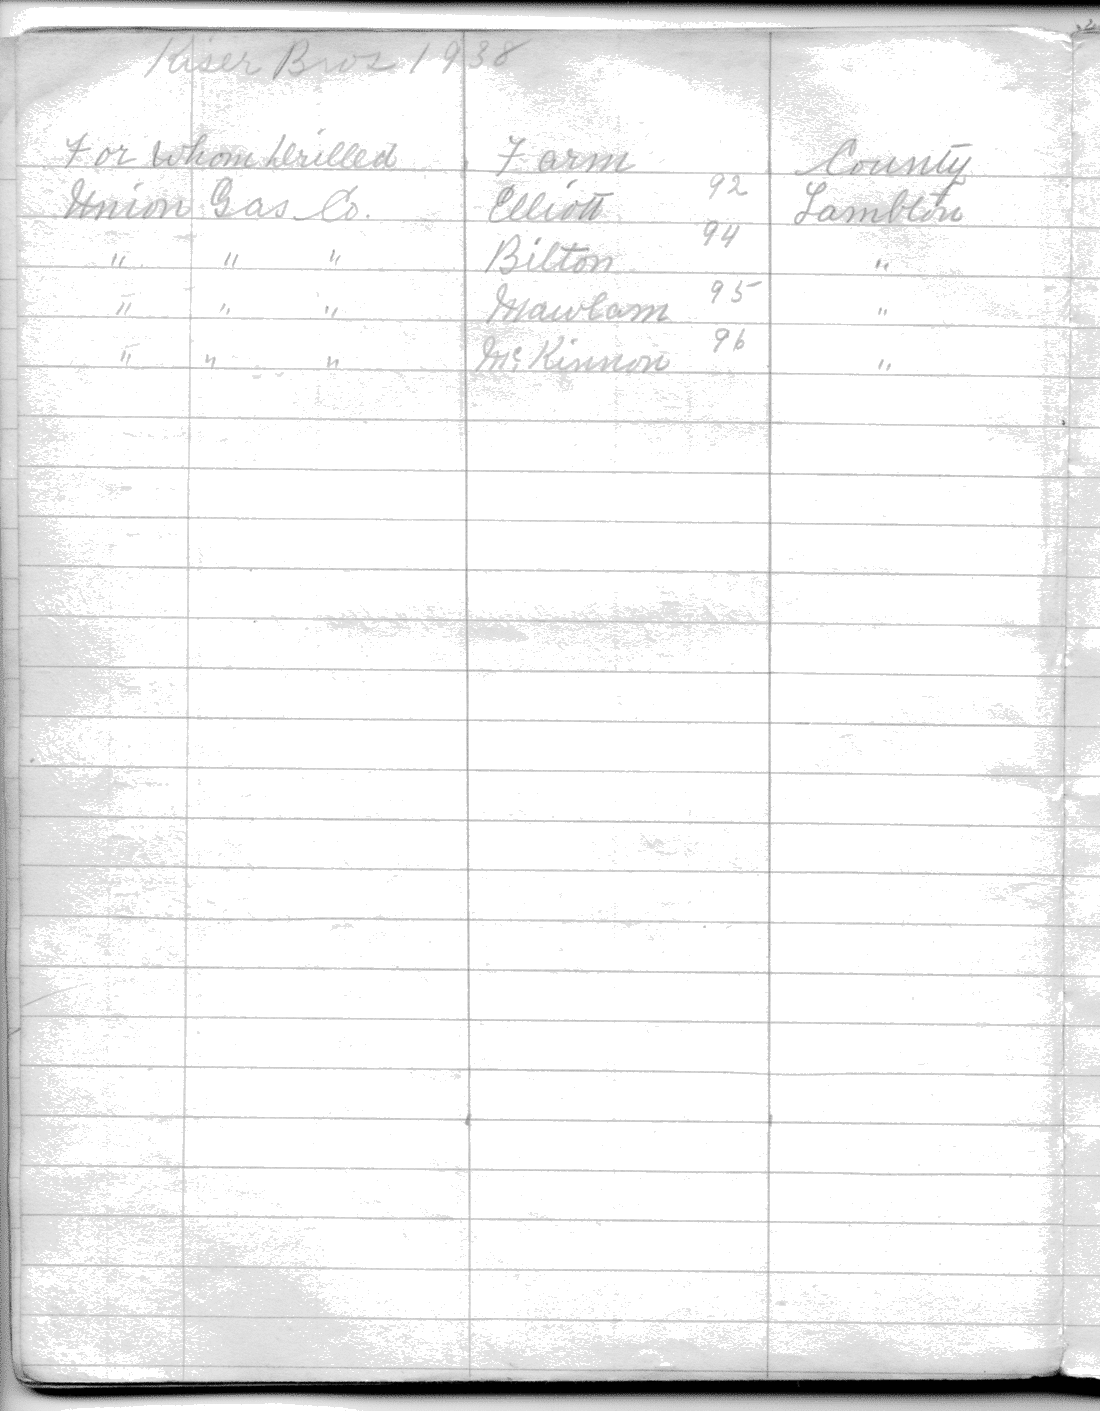 Kiser Bros 1938
For Whom Drilled Farm County
Union Gas Co. Elliott 92 Lambton
" " " Bilton 94 "
" " " Mawlam 95 "
" " " Mc Kinnon 96 "